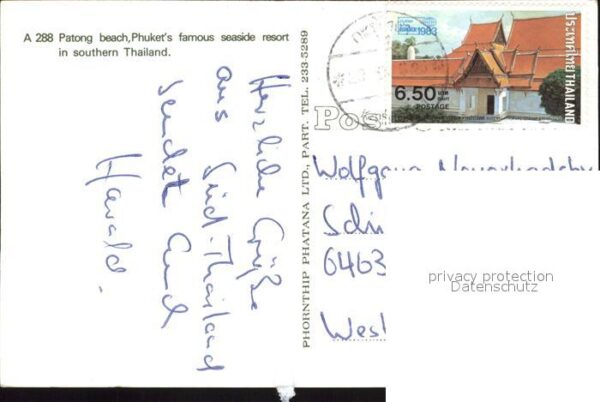 A 288 Patong beach,Phuket's famous seaside resort
in southern Thailand.
Herzliche Grüße
aus Süd-Thailand
sendet Euch
Harald.
PHORNTHIP PHATANA LTD., PART. TEL. 233-5289
1983
6.50
POSTAGE
ประเทศไทย THAILAND
Wolfgang
6463
West
privacy protection
Datenschutz